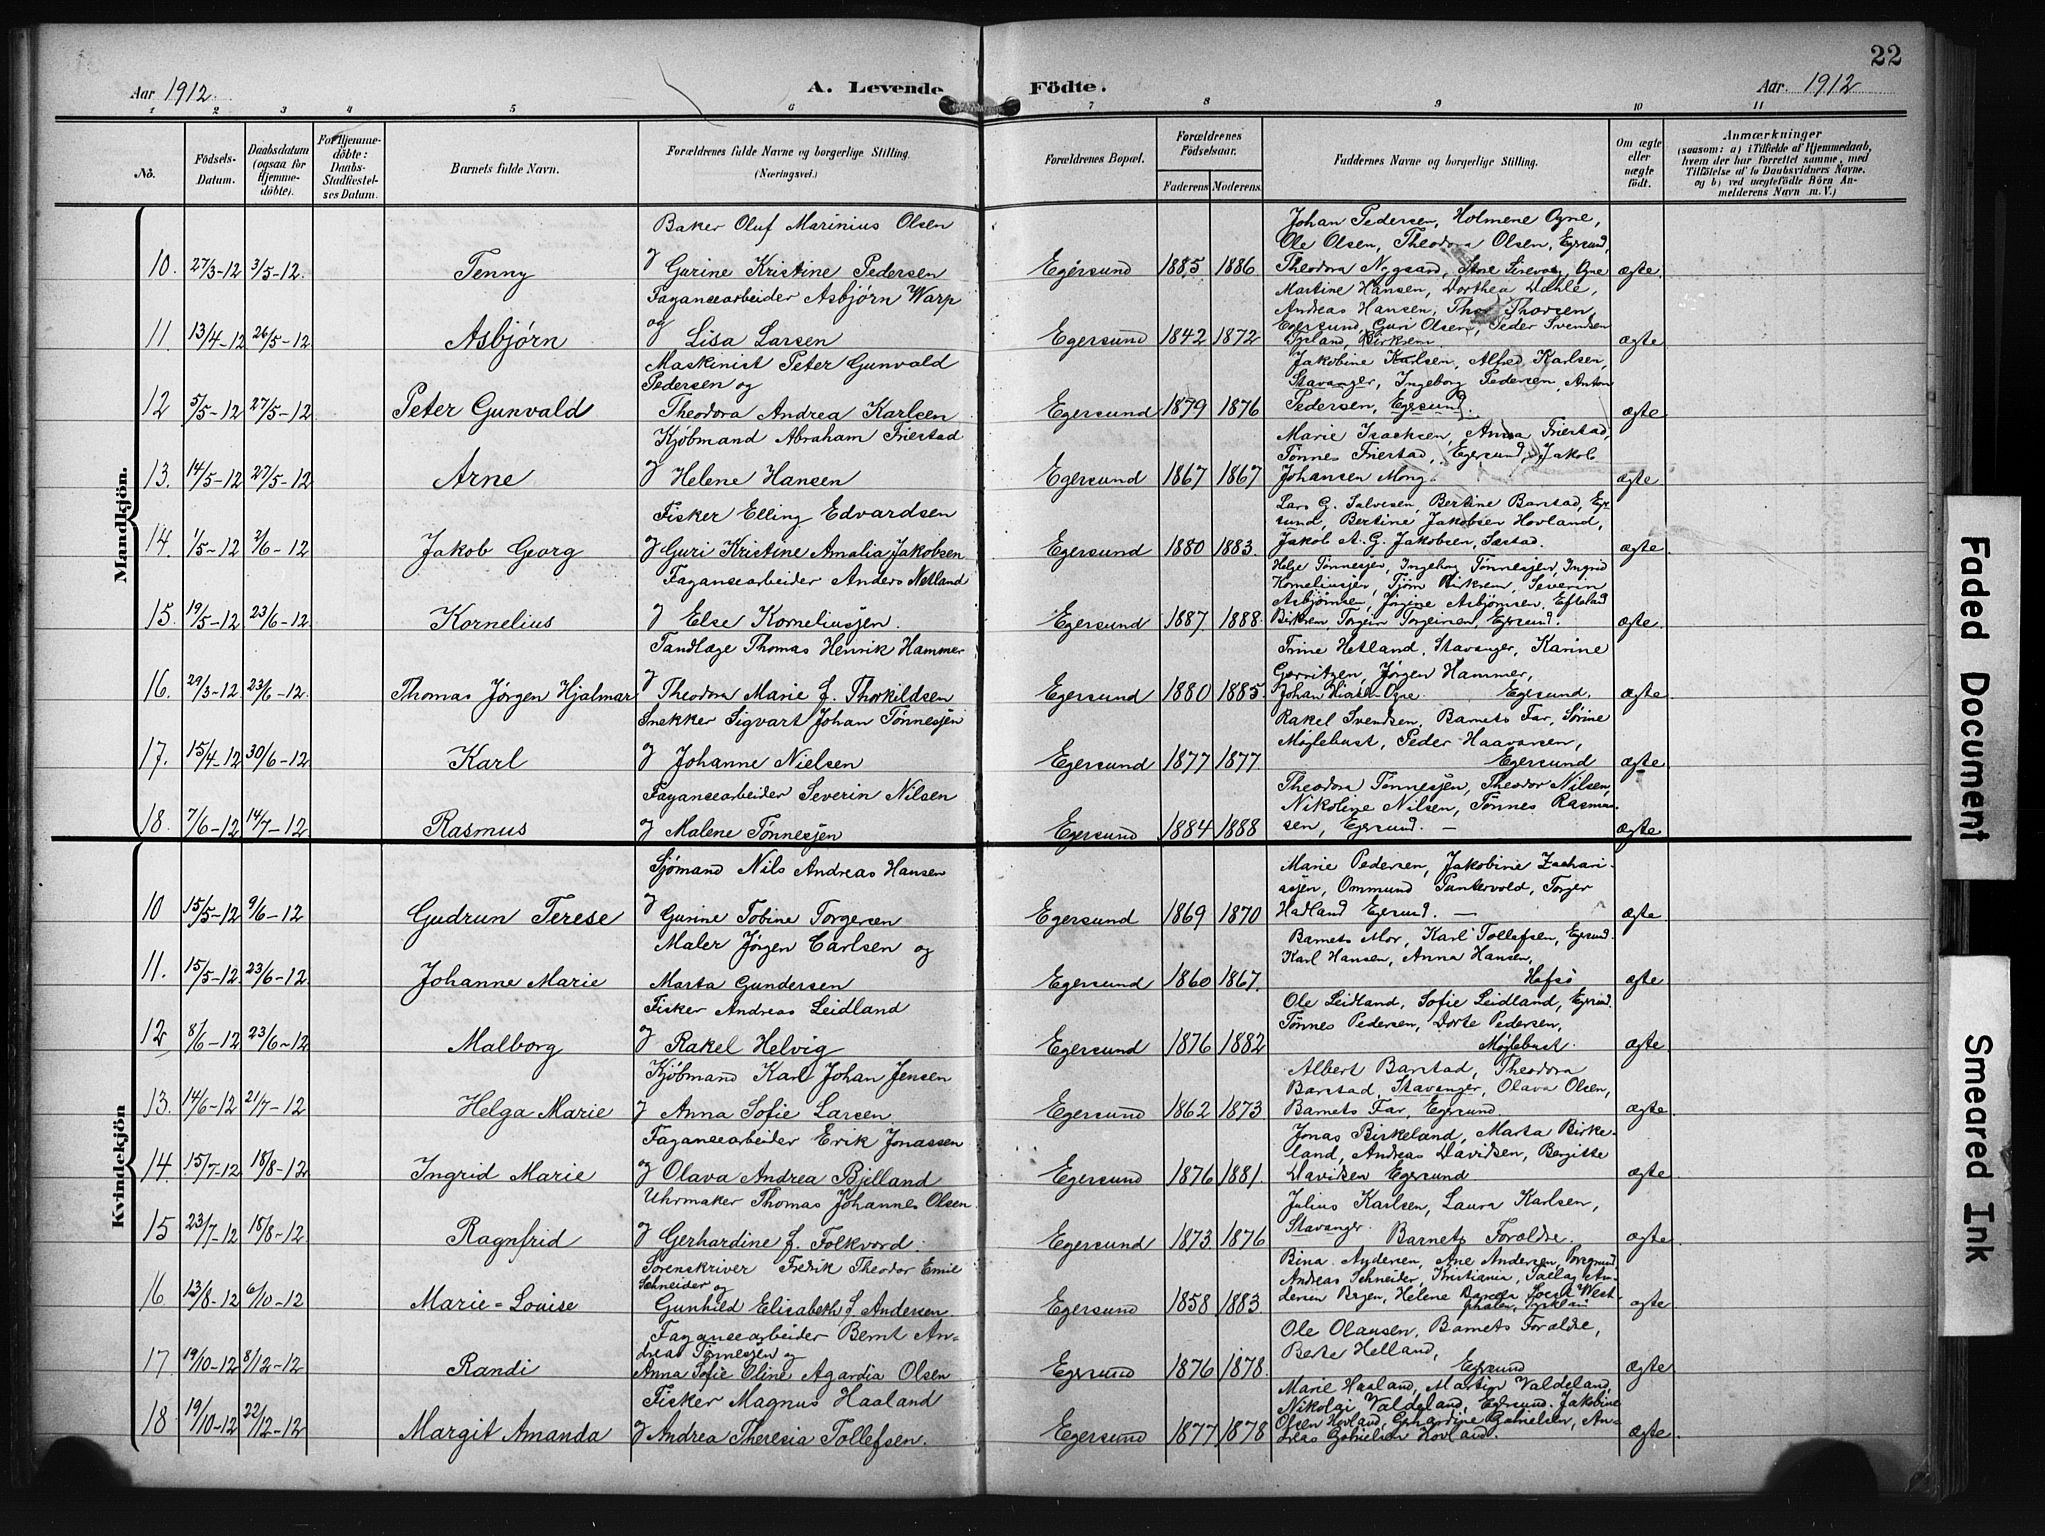 22
Aar 1912.
A. Levende Födte.
Aar. 1912
1 2 3 4 5 6 7 8 9 10 11
No.
Födsels-Datum.
Daabsdatum (ogsaa for Hjemmedöbte).
For Hjemmedöbte: Daabs-Stadfæstelses Datum.
Barnets fulde Navn.
Forældrenes fulde Navne og borgerlige Stilling. (Næringsvei.)
Forældrenes Bopæl.
Forældrenes Födselsaar.
Faderens Moderens.
Faddernes Navne og borgerlige Stilling.
Om ægte eller uægte födt.
Anmærkninger
(saasom: a) i Tilfælde af Hjemmedaab, hvem der har forrettet samme, med Tilföielse af to Daabsvidners Navne, og b) ved uægtefödte Börn Anmelderens Navn m. V.)
Mandkjön.
Baker Oluf Marinius Olsen
Johan Pedersen, Holmene Ogne,
Ole Olsen, Theodora Olsen, Egersund,
10. 27/3-12 3/5-12. Tenny
og Gurine Kristine Pedersen
Egersund 1885 1886
Theodora Nygaard, Store Sirevaag, Ogne ægte.
Fayansearbeider Asbjørn Warp
Martine Hansen, Dorthea Dæhle,
og
Andreas Hansen, Thor Thorsen,
11. 13/4-12 26/5-12. Asbjørn
Lisa Larsen
Egersund 1842 1872
Egersund, Guri Olsen, Peder Svendsen
Birkrem. ægte
Maskinist Peter Gunvald
Jakobine Karlsen, Alfred Karlsen,
Pedersen og
Stavanger, Ingeborg Pedersen, Anton
12 5/5-12 27/5-12 Peter Gunvald
Theodora Andrea Karlsen
Egersund 1879 1876
Pedersen, Egersund. ægte
Kjøbmand Abraham Friestad
Marie Isachsen, Anna Friestad,
Tønnes Friestad, Egersund, Jakob
13. 14/5-12 27/5-12 Arne
og Helene Hansen
Egersund 1867 1867
Johansen Mong. ægte
Fisker Elling Edvardsen
Lars G. Salvesen, Bertine Barstad, Eger
sund, Bertine Jakobsen Hovland,
14. 1/5-12 2/6-12 Jakob Georg
og Guri Kristine Amalia Jakobsen
Egersund 1880 1883.
Jakob A. G. Jakobsen, Sæstad. ægte
Fayansearbeider Anders Netland
Helge Tønnesjen, Ingeborg Tønnesjen, Ingrid
Korneliusjen, Tjørn Birkrem, Severin
Asbjørnsen, Jørgine Asbjørnsen, Efteland
15. 19/5-12 23/6-12. Kornelius
og Else Korneliusjen.
Egersund 1887 1888.
Birkrem, Torgein Torgeirsen, Egersund. ægte.
Tandlæge Thomas Henrik Hammer
Trine Hetland, Stavanger, Karine
Gerritzen, Jørgen Hammer,
16. 29/3-12 23/6-12. Thomas Jørgen Hjalmar
og Theodora Marie f. Thorkildsen
Egersund 1880 1885.
Johan Ogne. Egersund. ægte
Snekker Sigvart Johan Tønnesjen
Rakel Svendsen, Barnets Far, Sørine
Møglebust, Peder Haavarsen,
17. 15/4-12 30/6-12 Karl
og Johanne Nielsen
Egersund 1877 1877
Egersund ægte
Fayansearbeider Severin Nilsen
Theodora Tønnesjen, Theodor Nilsen,
Nikoline Nilsen, Tønnes Rasmus-
18. 7/6-12 14/7-12 Rasmus
og Malene Tønnesjen
Egersund 1884 1888
sen, Egersund. — ægte
Kvindekjön
Sjømand Nils Andreas Hansen
Marie Pedersen, Jakobine Zachari-
asjen, Ommund Puntervold, Torger
10 15/5-12 9/6-12 Gudrun Terese
og Gurine Tobine Torgersen
Egersund 1869 1870
Hadland Egersund. — ægte
Maler Jørgen Carlsen og
Barnets Mor, Karl Tollefsen, Egersund.
Karl Hansen, Anna Hansen,
11. 15/5-12. 23/6-12 Johanne Marie
Marta Gundersen
Egersund 1860 1867.
Hafsø ægte
Fisker Andreas Leidland
Ole Leidland, Sofie Leidland, Egersund.
Tønnes Pedersen, Dorte Pedersen,
12 8/6-12 23/6-12 Malborg
og Rakel Helvig
Egersund 1876 1882
Møglebust. ægte.
Kjøbmand Karl Johan Jensen
Albert Barstad, Theodora
Barstad, Stavanger, Olava Olsen,
13. 14/6-12 21/7-12 Helga Marie
og Anna Sofie Larsen
Egersund 1862 1873
Barnets Far, Egersund. ægte
Fayansearbeider Erik Jonassen
Jonas Birkeland, Marta Birke-
land, Andreas Davidsen, Bergitte
14. 15/7-12 18/8-12 Ingrid Marie
og Olava Andrea Bjelland
Egersund 1876 1881.
Davidsen Egersund. ægte
Uhrmaker Thomas Johannes Olsen
Julius Karlsen, Laura Karlsen,
15 23/7-12 18/8-12 Ragnfrid
og Gerhardine f. Folkvord.
Egersund 1873 1876
Stavanger. Barnets Forældre. ægte.
Sorenskriver Fredrik Theodor Emil
Bina Andersen, Ane Andersen, Porsgrund
Schneider og
Andreas Schneider, Kristiania,
16 13/8-12 6/10-12 Marie-Louise
Gunhild Elisabeth f. Andersen.
Egersund 1858 1883.
dersen Bergen, Helene Soest West-
phalen, Tyskland ægte
Fayansearbeider Bernt An-
Ole Olausen, Barnets Forældre,
dreas Tønnesjen og
Berte Helland,
17 19/10-12 8/12-12 Randi
Anna Sofie Oline Agardia Olsen
Egersund 1876 1878.
Egersund ægte
Fisker Magnus Haaland
Marie Haaland, Martin Valdeland,
Nikolai Valdeland, Egersund. Jakobine
18 19/10-12 22/12-12 Margit Amanda
og Andrea Theresia Tollefsen.
Egersund 1877 1878
Olsen Hovland, Gerhardine Gabrielsen, An-
dreas Gabrielsen Hovland. ægte
Faded Document
Smeared Ink